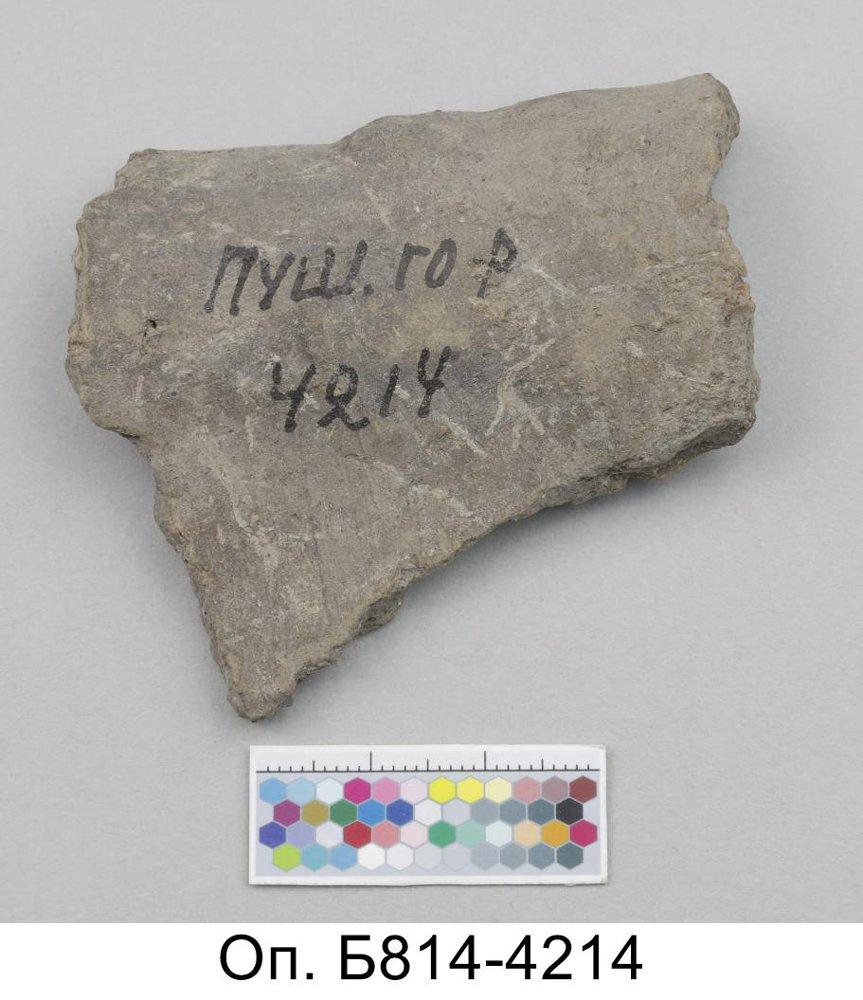 ПУШ. ГО-Р
4214
Оп. Б814-4214